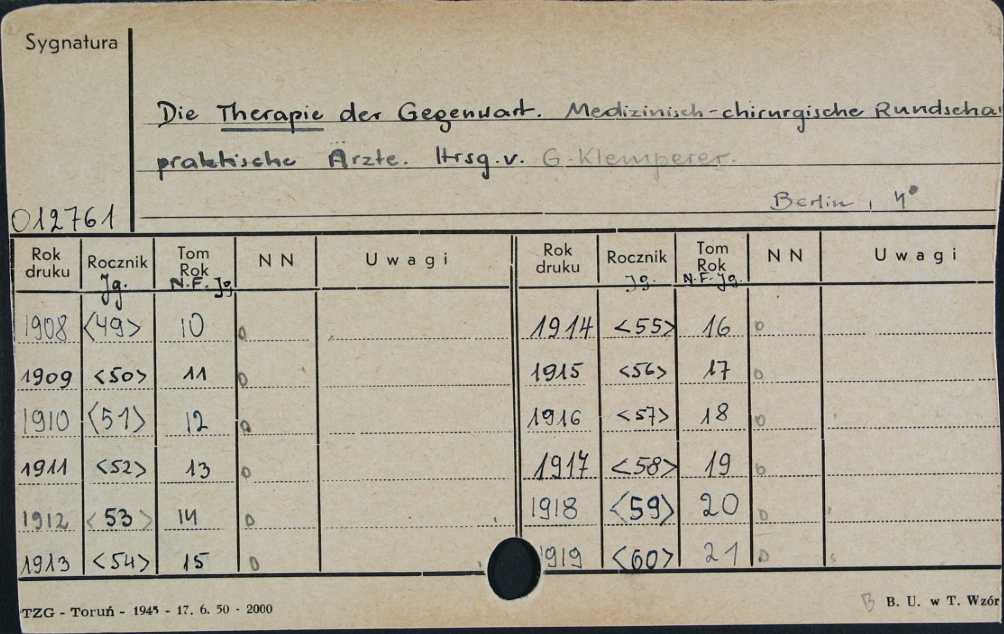 Sygnatura
Die Therapie der Gegenwart. Medizinisch-chirurgische Rundscha
praktische Ärzte. Hrsg.v. G. Klemperer.
Berlin, 4°
012761
Rok druku Rocznik Tom Rok N N Uwagi Rok druku Rocznik Tom Rok N N Uwagi
Jg. N.F. Jg. Jg. N.F. Jg.
1908 <49> 10 0 1914 <55> 16 0
1909 <50> 11 0 1915 <56> 17 0
1910 <51> 12 0 1916 <57> 18 0
1911 <52> 13 0 1917 <58> 19 0
1912 <53> 14 0 1918 <59> 20 0
1913 <54> 15 0 1919 <60> 21 0
TZG - Toruń - 1945 - 17. 6. 50 - 2000 B B. U. w T. Wzór